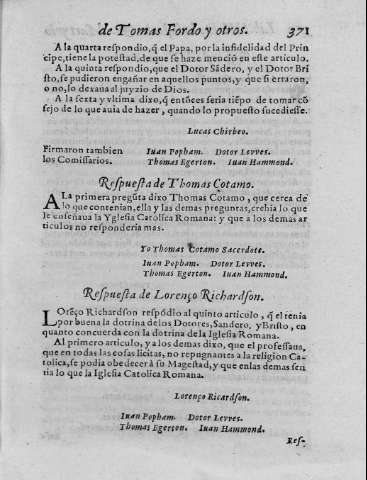 de Tomas Fordo y otros. 371
A la quarta respondio, q̃ el Papa, por la infidelidad del Prin
cipe, tiene la potestad, de que se haze mencio en este articulo.
A la quinta respondio, que el Dotor Sãdero, y el Dotor Bri
sto, se pudieron engañar en aquellos puntos, y que si erraron,
o no, lo dexaua al juyzio de Dios.
A la sexta y vltima dixo, q̃ entõces seria tiẽpo de tomar cõ
sejo de lo que auia de hazer, quando lo propuesto sucediesse.
Lucas Chirbeo.
Firmaron tambien Iuan Popham. Dotor Levves.
los Comissarios. Thomas Egerton. Iuan Hammond.
Respuesta de Thomas Cotamo.
A La primera pregũta dixo Thomas Cotamo, que cerca de
lo que contenian, ella y las demas preguntas, crehia lo que
le enseñaua la Yglesia Catolica Romana: y que a los demas ar
ticulos no responderia mas.
Yo Thomas Cotamo Sacerdote.
Iuan Popham. Dotor Levves.
Thomas Egerton. Iuan Hammond.
Respuesta de Lorenço Richardson.
LOrẽço Richardson respõdio al quinto articulo, q̃ el tenia
por buena la dotrina de los Dotores, Sandero, y Bristo, en
quanto concuerda con la dotrina de la Iglesia Romana.
Al primero articulo, y a los demas dixo, que el professaua,
que en todas las cosas licitas, no repugnantes a la religion Ca-
tolica, se podia obedecer à su Magestad, y que en las demas sen
tia lo que la Iglesia Catolica Romana.
Lorenço Ricardson.
Iuan Popham. Dotor Levves.
Thomas Egerton. Iuan Hammond.
Res-